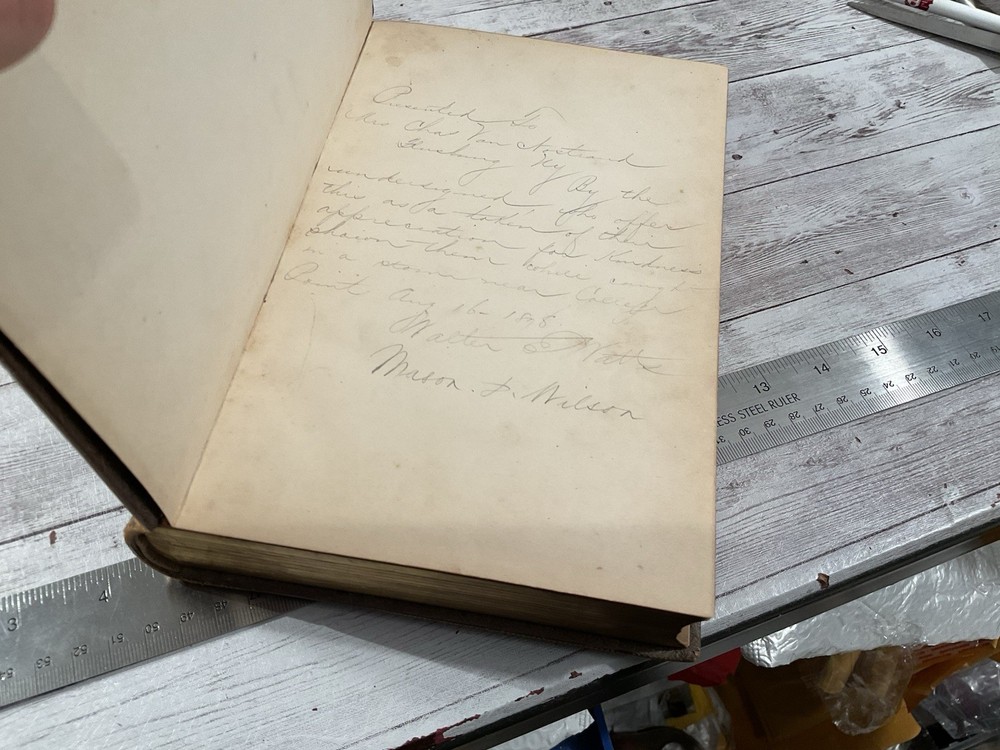 Presented To
Mrs Chas Van Nostrand
Flushing Ny By the
undersigned who offer
this as a token of their
appreciation for kindness
shown them while caught
in a storm near College
Point Aug 16- 18
Walter Watts
Mason. F. Wilson
13 14 15 16 17
ESS STEEL RULER
31 30 29 28 27 26 25 24 23 22 21 20 19
3 4
54 53 52 51 50 49 48